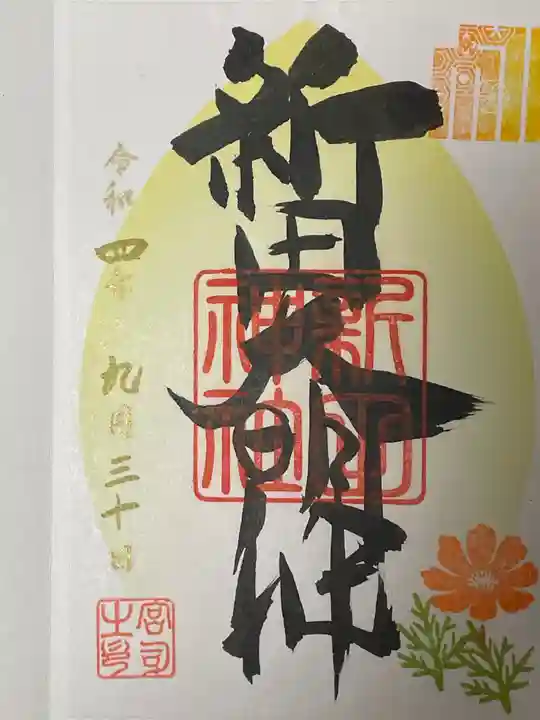 新田大明神
新田神社
令和四年九月三十日
宮司之印